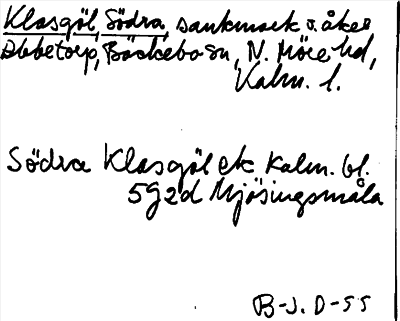 Klasgöl, Södra, sankmark o. åker
Abbetorp, Bäckebo sn, N. Möre hd,
Kalm. l.
Södra Klasgöl ek Kalm. bl.
5G2d Mjösingsmåla
B-J. D-55